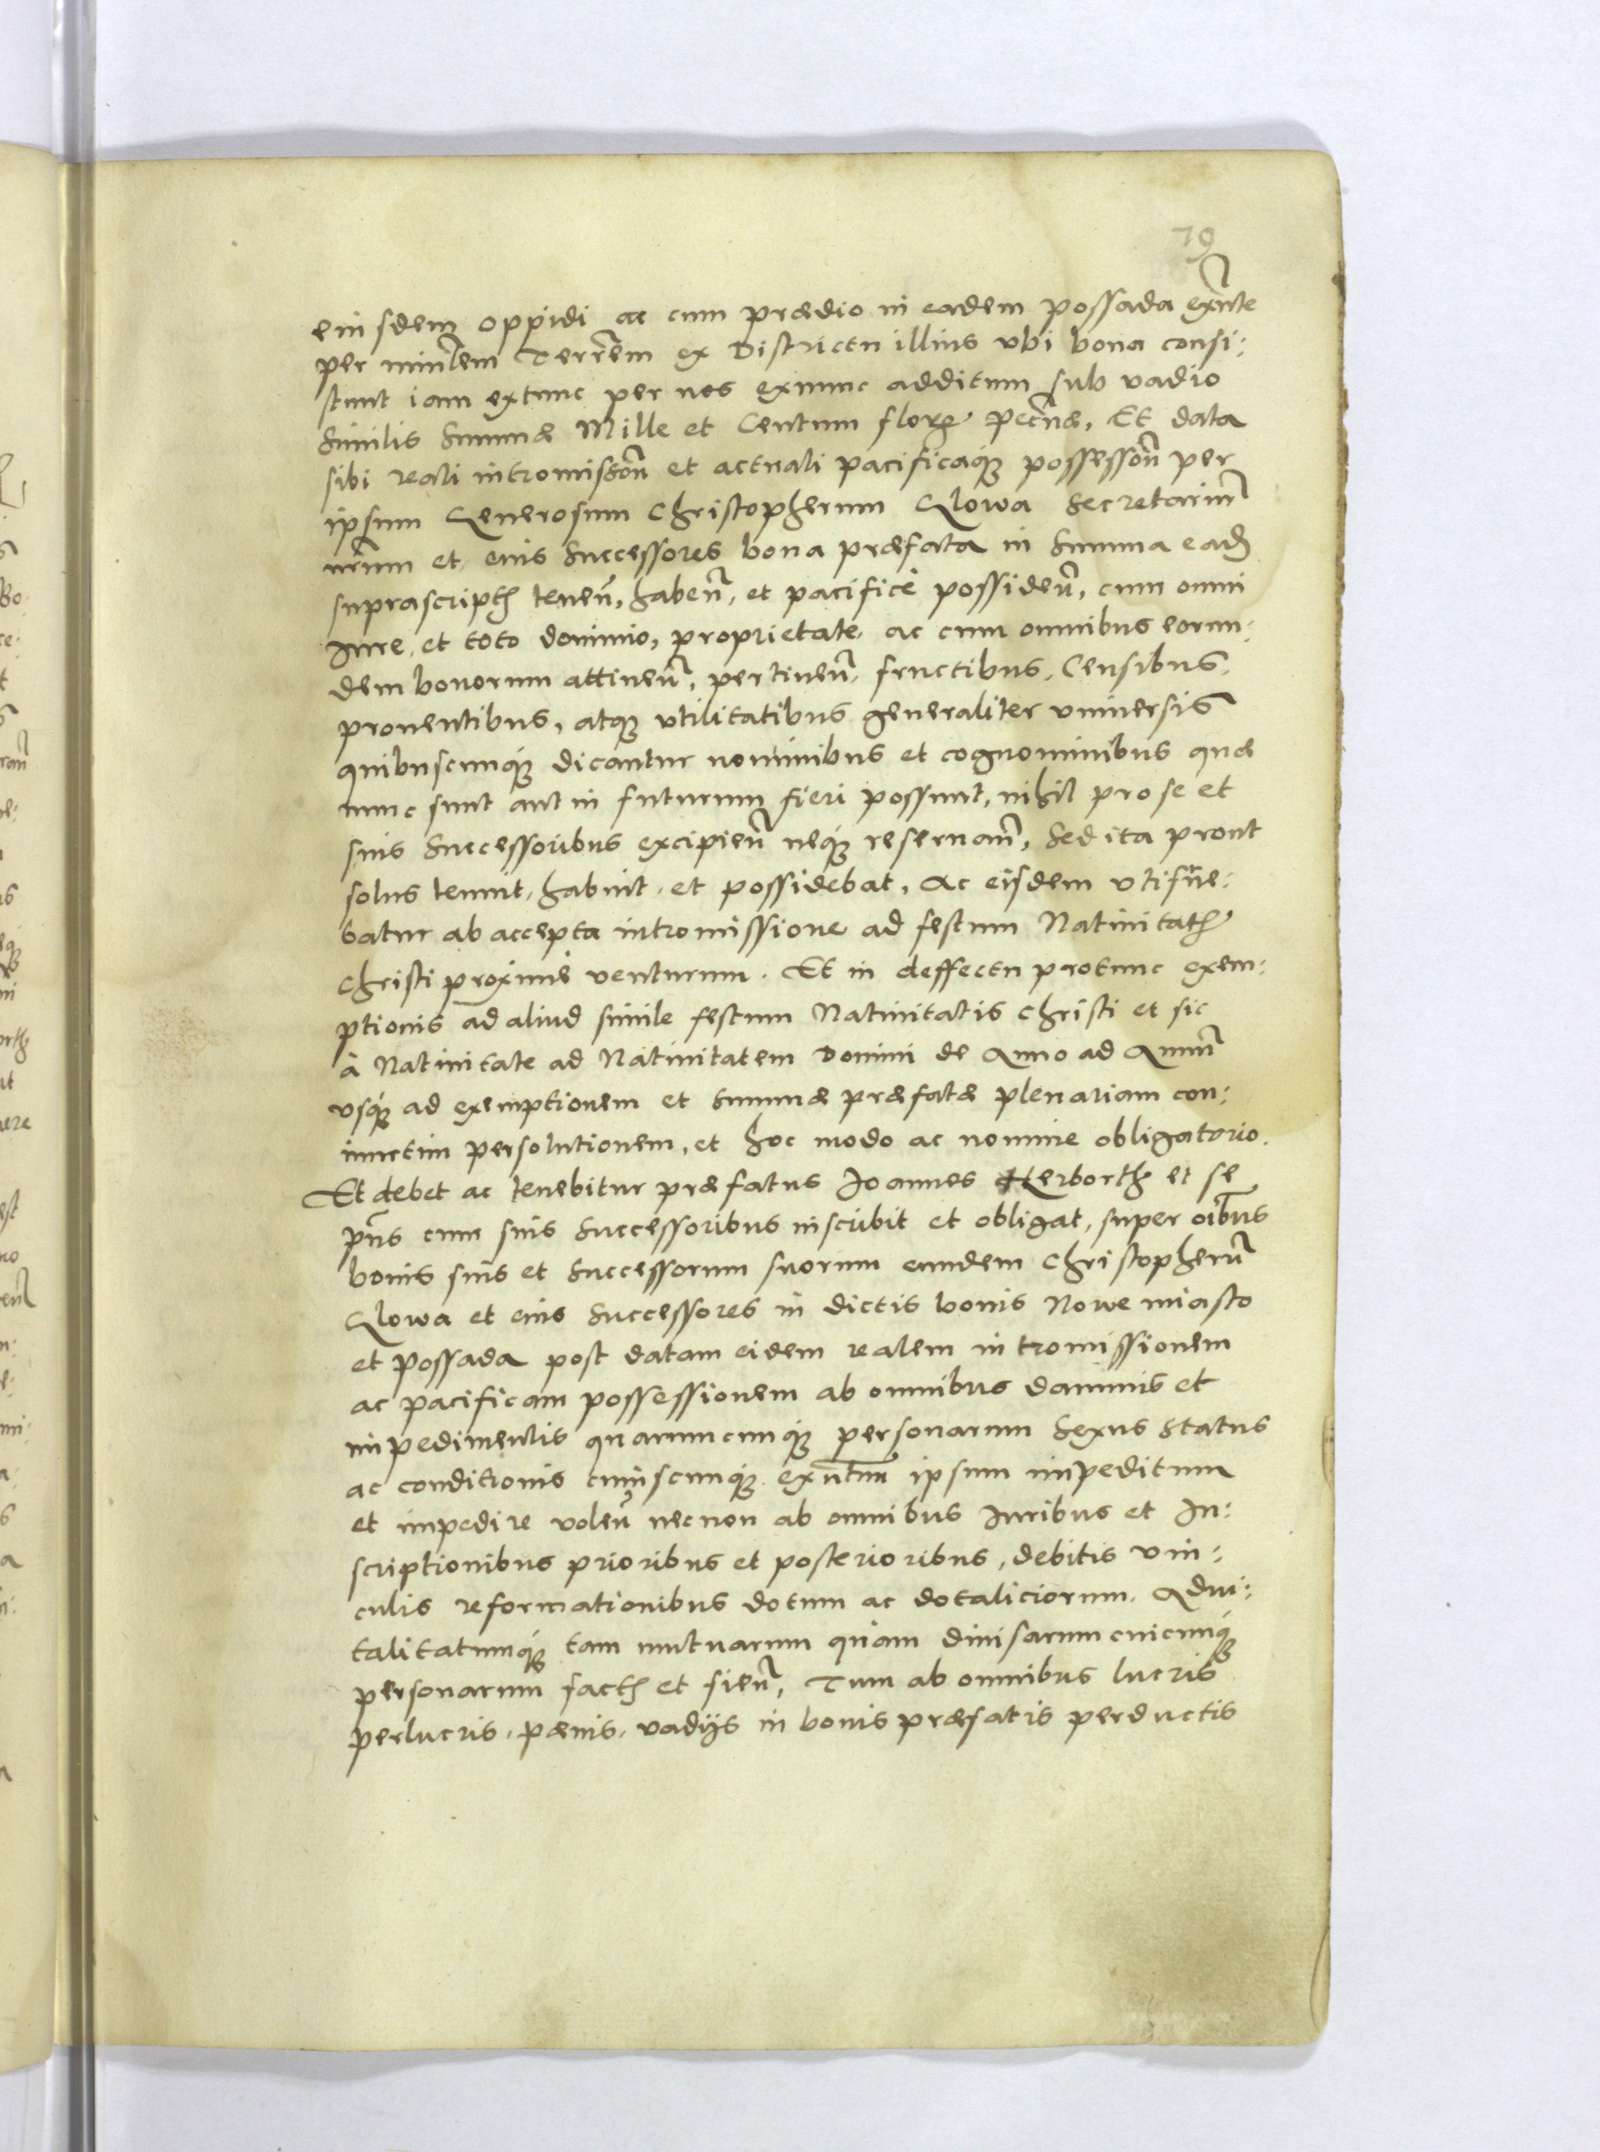 79
eiusdem oppidi ac cum prædio in eadem possada exn̄te
per minr̄lem Terrēm ex Districtu illius vbi bona consi:
stunt iam extunc per nos exnunc additum sub vadio
similis summæ Mille et Centum flor pecūæ, Et data
sibi reali intromissōn et actuali pacificaq possessōn per
ipsum Generosum Christopherum Glowa Secretariū
nr̄um et eius Successores bona præfata in Summa eadē
suprascript tenēn, habēn, et pacifice possidēn, cum omni
Iure, et toto dominio, proprietate, ac cum omnibus eorun:
dem bonorum attinēn, pertinēn, fructibus, Censibus,
prouentibus, atq vtilitatibus generaliter vniuersis
quibuscunq dicantur nominibus et cognominibus quæ
nunc sunt aut in futurum fieri possunt, nihil pro se et
suis Successoribus excipiēn neq reseruān, Sed ita prout
solus tenuit, habuit, et possidebat, Ac eisdem vtifrue:
batur ab accepta intromissione ad festum Natiuitat
Christi proxime venturum. Et in deffectu protunc exem:
ptionis ad aliud simile festum Natiuitatis Christi et sic
à Natiuitate ad Natiuitatem Domini de Anno ad Annū
vsq ad exemptionem et summæ præfatæ plenariam con:
iunctim persolutionem, et hoc modo ac nomine obligatorio.
Et debet ac tenebitur præfatus Joannes Herborth et se
pn̄s cum suis Successoribus inscribit et obligat, super oībus
bonis suis et Successorum suorum eundem Christopherū
Glowa et eius Successores in dictis bonis Nowe miasto
et Possada post datam eidem realem intromissionem
ac pacificam possessionem ab omnibus damnis et
impedimentis quarumcunq personarum Sexus Status
ac conditionis cuiuscunq exn̄tium ipsum impeditum
et impedire volēn necnon ab omnibus Iuribus et In:
scriptionibus prioribus et posterioribus, debitis vin:
culis reformationibus dotum ac dotaliciorum, Adui:
talitatumq tam mutuarum quam diuisarum cuicunq
personarum fact et fiēn, Tum ab omnibus lucris
perlucris, pænis, vadijs in bonis præfatis perductis